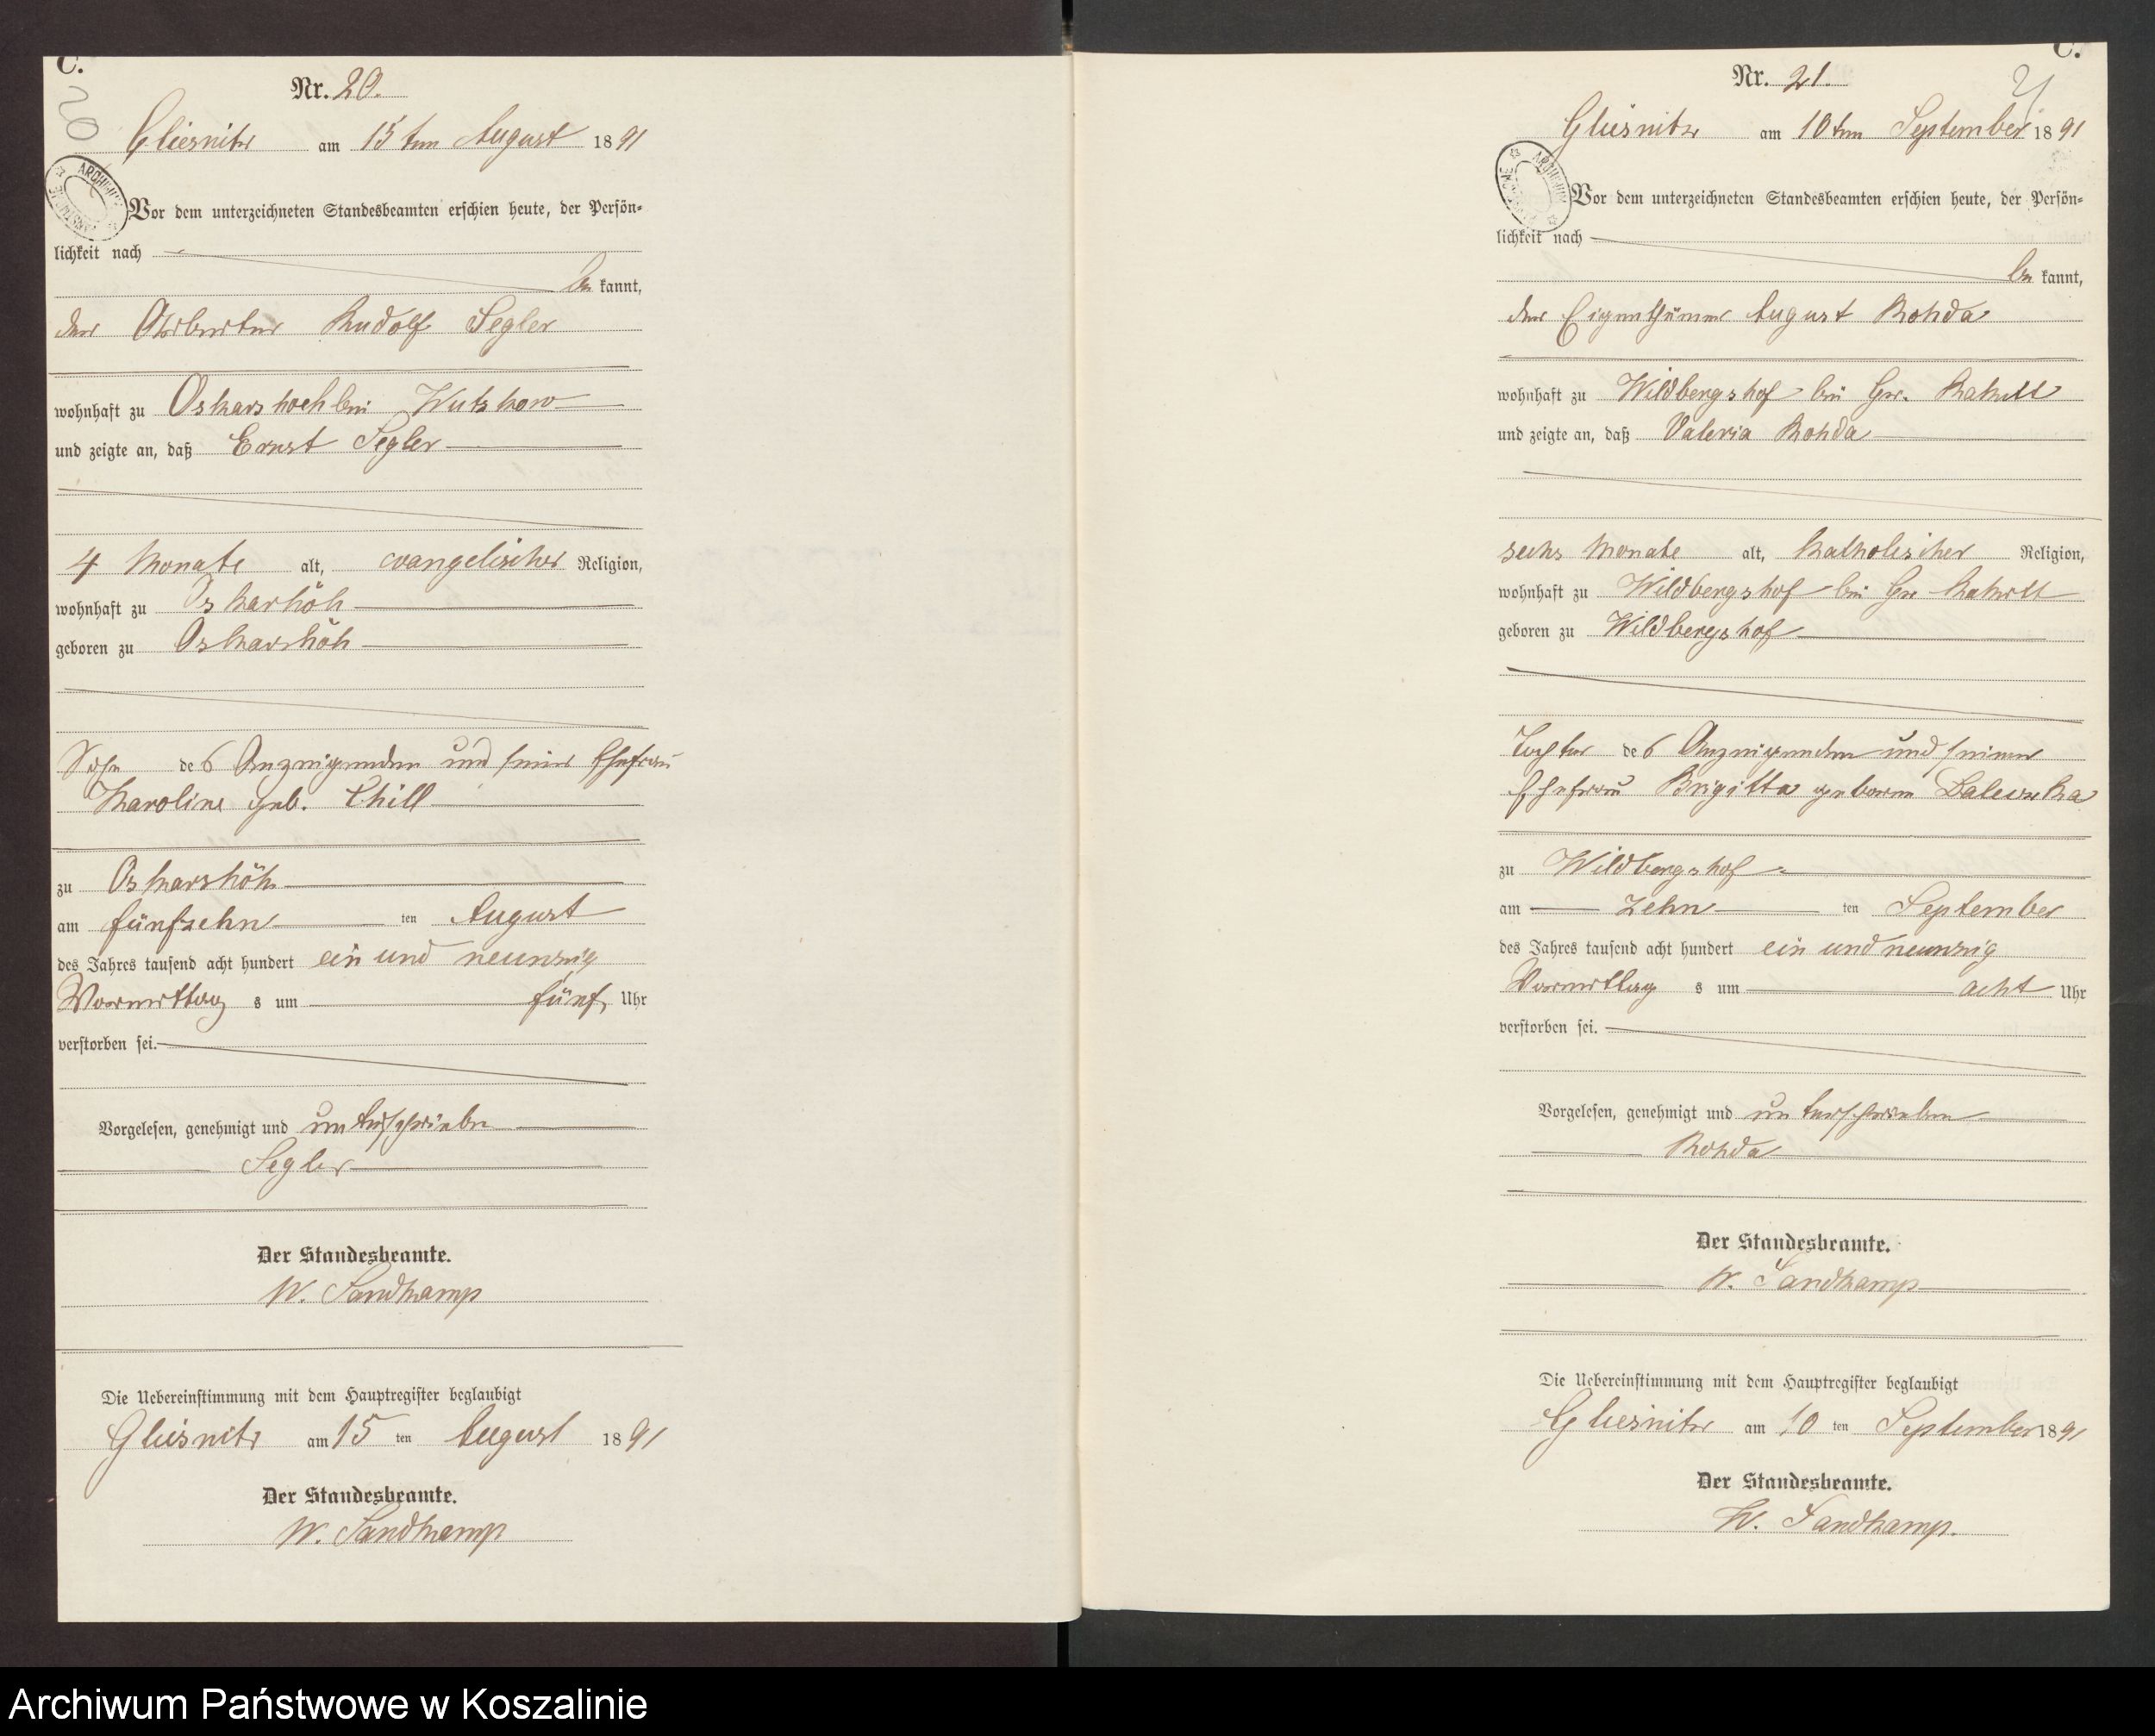 C.
20
Nr. 20.
Gliesnitz am 15ten August 1891
Vor dem unterzeichneten Standesbeamten erschien heute, der Persön-
lichkeit nach
be kannt,
der Arbeiter Rudolf Segler
wohnhaft zu Oskarshoeh bei Wutzkow
und zeigte an, daß Ernst Segler
4 Monate alt, evangelischer Religion,
wohnhaft zu Oskarhöh
geboren zu Oskarshöh
Sohn des Anzeigenden und seiner Ehefrau
Karoline geb. Chill
zu Oskarshöh
am fünfzehn ten August
des Jahres tausend acht hundert ein und neunzig
Vormittag s um fünf Uhr
verstorben sei.
Vorgelesen, genehmigt und unterschrieben
Segler
Der Standesbeamte.
W. Sandkamp
Die Uebereinstimmung mit dem Hauptregister beglaubigt
Gliesnitz am 15 ten August 1891
Der Standesbeamte.
W. Sandkamp
C.
21
Nr. 21.
Gliesnitz am 10ten September 1891
Vor dem unterzeichneten Standesbeamten erschien heute, der Persön-
lichkeit nach
be kannt,
der Eigenthümer August Rohda
wohnhaft zu Wildbergshof bei Gr. Rakitt
und zeigte an, daß Valeria Rohda
sechs Monate alt, katholischer Religion,
wohnhaft zu Wildbergshof bei Gr Rakitt
geboren zu Wildbergshof
Tochter des Anzeigenden und seiner
Ehefrau Brigitta geboren
zu Wildbergshof
am zehn ten September
des Jahres tausend acht hundert ein und neunzig
Vormittag s um acht Uhr
verstorben sei.
Vorgelesen, genehmigt und unterschrieben
Rohda
Der Standesbeamte.
W. Sandkamp
Die Uebereinstimmung mit dem Hauptregister beglaubigt
Gliesnitz am 10 ten September 1891
Der Standesbeamte.
W. Sandkamp.
Archiwum Państwowe w Koszalinie